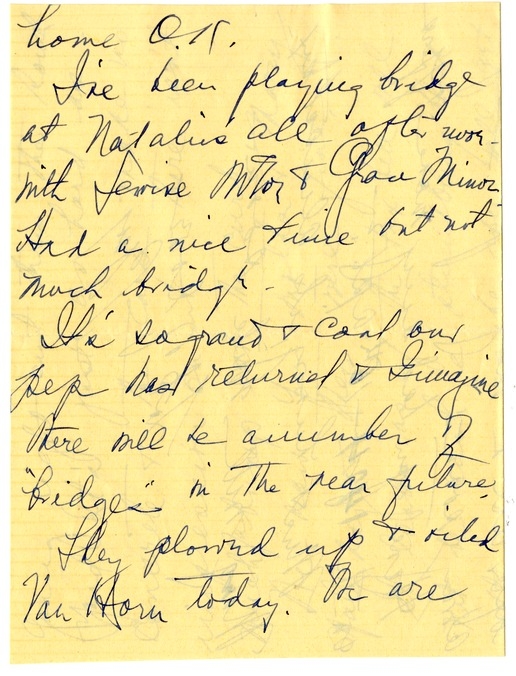 home O.K.
I've been playing bridge
at Natalie's all after noon-
with & Grace Minor
Had a nice time but not
much bridge-
It's so grand & cool our
pep has returned & I imagine
there will be a number of
"bridges" in the near future.
They plowed up & oiled
Van Horn today. We are